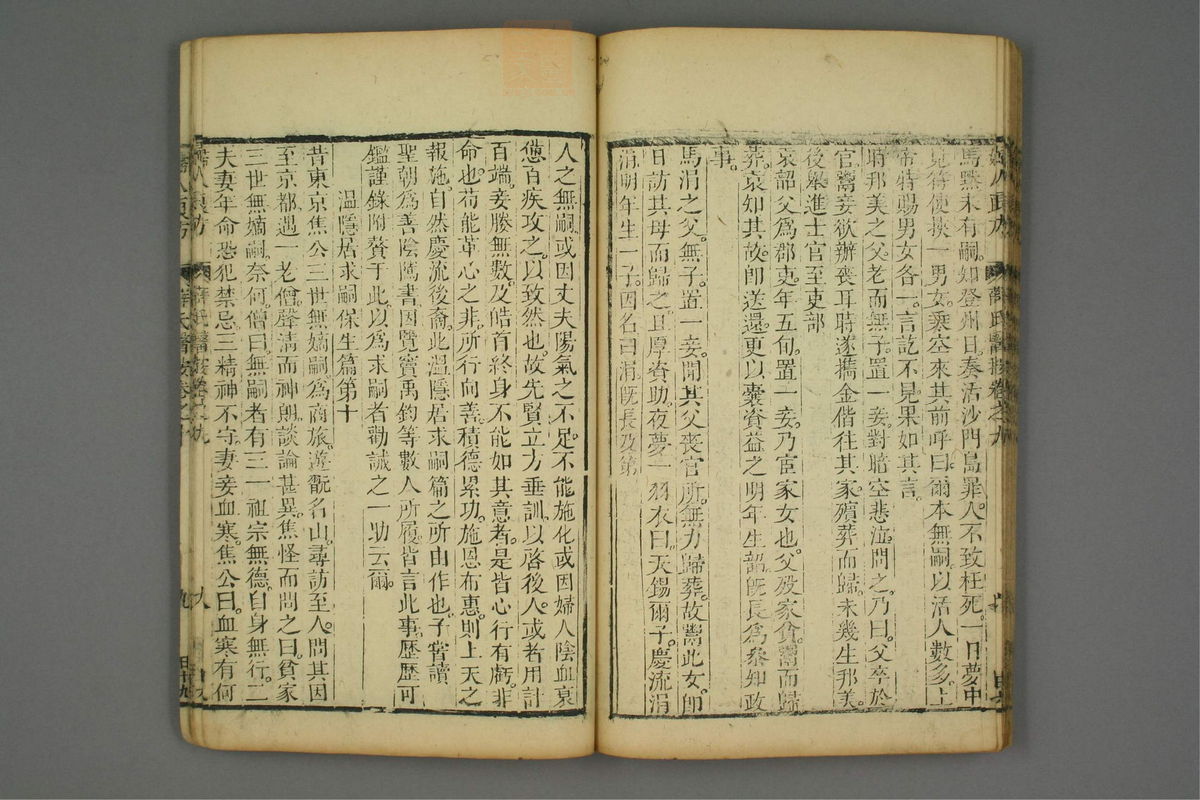 馬黙未有嗣知登州日奏活沙門島罪人不致枉死一日夢中
見符使挾一男女乘空來其前呼曰爾本無嗣以活人數多上
帝特賜男女各一言訖不見果如其言
時邦美之父老而無子置一妾對暗空悲泣問之乃曰父卒於
官鬻妾欲辦喪耳時遂擕金偕徃其家殯葬而歸未幾生邦美
後舉進士官至吏部
哀韶父爲郡吏年五旬置一妾乃宦家女也父歿家貧鬻而歸
葬哀知其故卽送還更以囊資益之明年生韶旣長爲參知政
事
馬涓之父無子置一妾聞其父喪官所無力歸葬故鬻此女卽
日訪其母而歸之且厚資助夜夢一羽衣曰天錫爾子慶流涓
涓明年生一子因名曰涓旣長及第
人之無嗣或因丈夫陽氣之不足不能施化或因婦人陰血衰
憊百疾攻之以致然也故先賢立方垂訓以啓後人或者用計
百端妾媵無數及皓首終身不能如其意者是皆心行有虧非
命也苟能革心之非所行向善積德累功施恩布惠則上天之
報施自然慶流後裔此溫隱居求嗣篇之所由作也予甞讀
聖朝爲善陰隲書因覽竇禹鈞等數人所履皆言此事歷歷可
鑑謹錄附贅于此以爲求嗣者勸誡之一助云爾
溫隱居求嗣保生篇第十
昔東京焦公三世無嫡嗣爲商旅遊翫名山尋訪至人問其因
至京都遇一老僧聲清而神朗談論甚異焦怪而問之曰貧家
三世無嫡嗣奈何僧曰無嗣者有三一祖宗無德自身無行二
夫妻年命恐犯禁忌三精神不守妻妾血寒焦公曰血寒有何
婦人良方
薛氏醫按卷之九